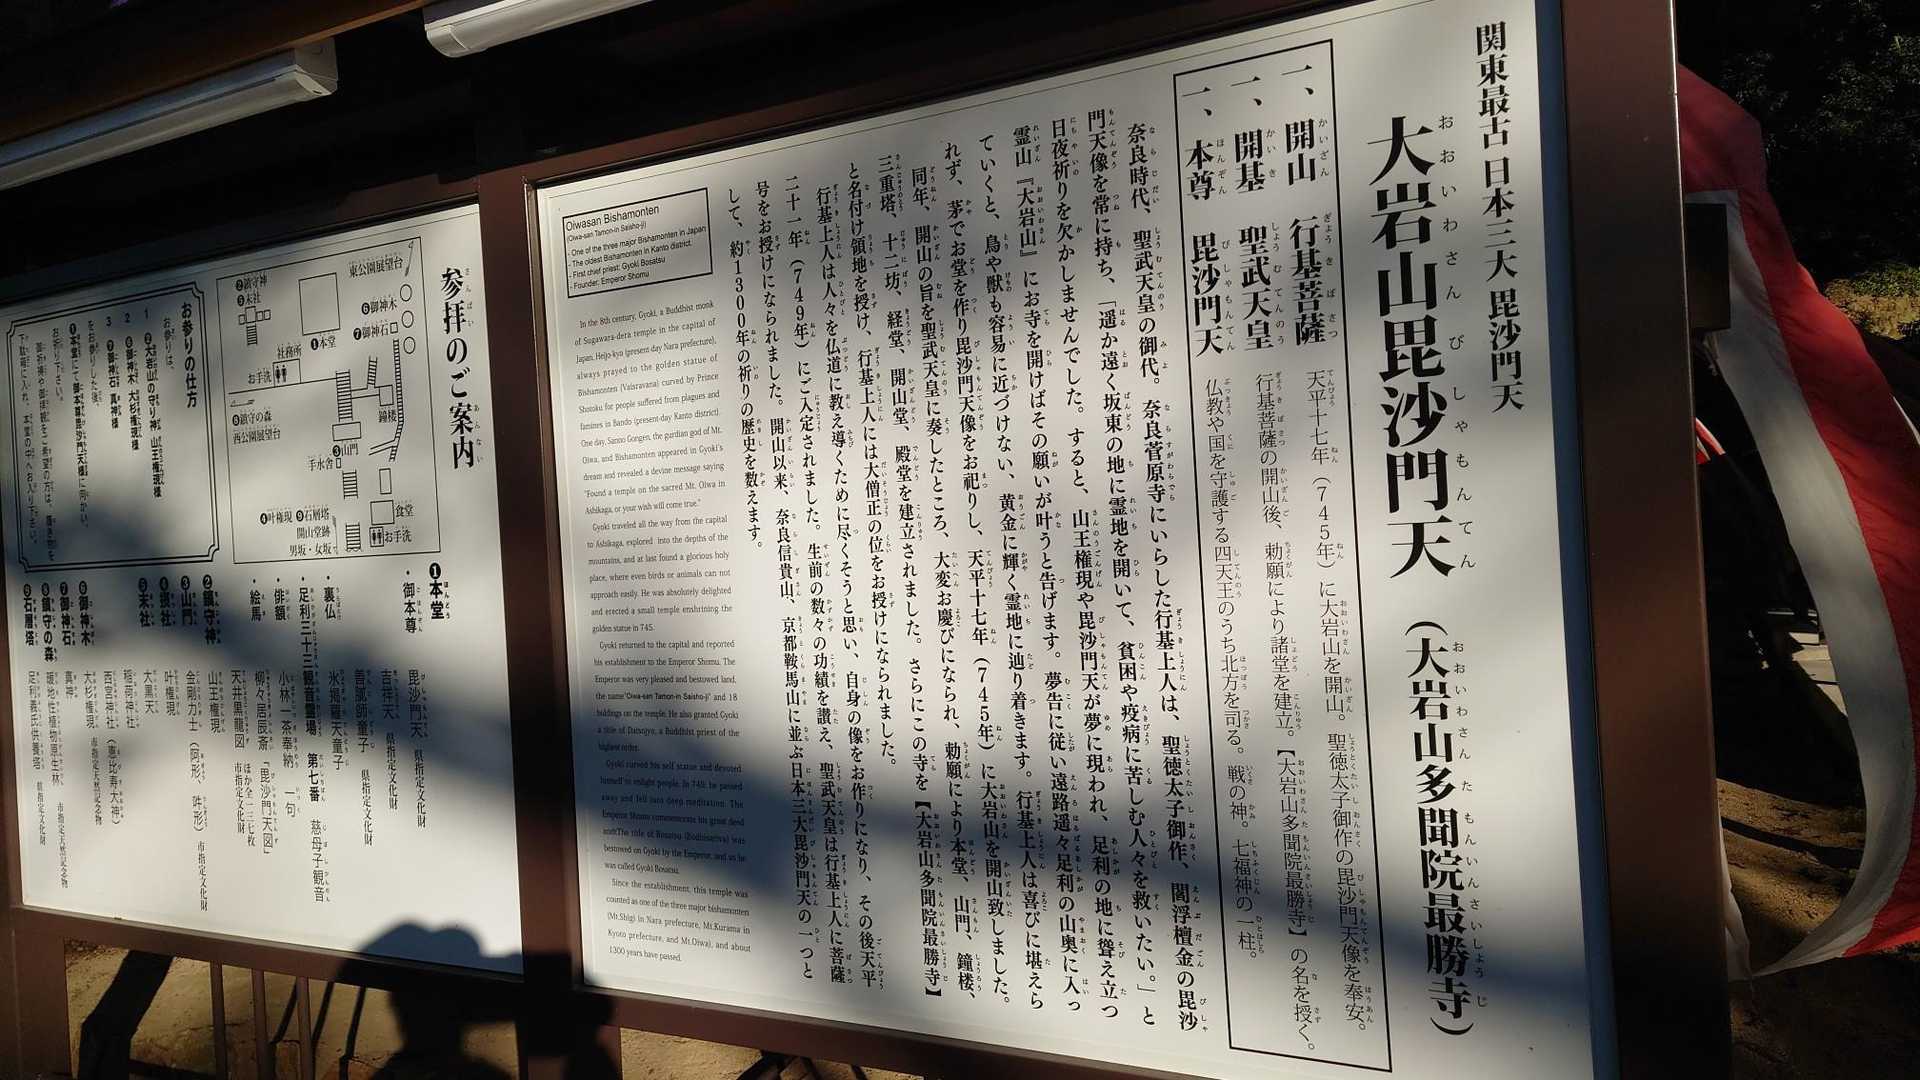 関東最古 日本三大 毘沙門天
大岩山毘沙門天（大岩山多聞院最勝寺）
一、開山 行基菩薩 天平十七年（745年）に大岩山を開山。聖徳太子御作の毘沙門天像を奉安。
一、開基 聖武天皇 行基菩薩の開山後、勅願により諸堂を建立。【大岩山多聞院最勝寺】の名を授く。
一、本尊 毘沙門天 仏教や国を守護する四天王のうち北方を司る。戦の神。七福神の一柱。
奈良時代、聖武天皇の御代。奈良菅原寺にいらした行基上人は、聖徳太子御作、閻浮檀金の毘沙
門天像を常に持ち、「遥か遠く坂東の地に霊地を開いて、貧困や疫病に苦しむ人々を救いたい。」と
日夜祈りを欠かしませんでした。すると、山王権現や毘沙門天が夢に現われ、足利の地に聳え立つ
霊山『大岩山』にお寺を開けばその願いが叶うと告げます。夢告に従い遠路遥々足利の山奥に入っ
ていくと、鳥や獣も容易に近づけない、黄金に輝く霊地に辿り着きます。行基上人は喜びに堪えら
れず、茅でお堂を作り毘沙門天像をお祀りし、天平十七年（745年）に大岩山を開山致しました。
同年、開山の旨を聖武天皇に奏したところ、大変お慶びになられ、勅願により本堂、山門、鐘楼、
三重塔、十二坊、経堂、開山堂、殿堂を建立されました。さらにこの寺を【大岩山多聞院最勝寺】
と名付け領地を授け、行基上人には大僧正の位をお授けになられました。
行基上人は人々を仏道に教え導くために尽くそうと思い、自身の像をお作りになり、その後天平
二十一年（749年）にご入定されました。生前の数々の功績を讃え、聖武天皇は行基上人に菩薩
号をお授けになられました。開山以来、奈良信貴山、京都鞍馬山に並ぶ日本三大毘沙門天の一つと
して、約1300年の祈りの歴史を数えます。
Oiwasan Bishamonten
(Oiwa-san Tamon-in Saisho-ji)
- One of the three major Bishamonten in Japan
- The oldest Bishamonten in Kanto district.
- First chief priest: Gyoki Bosatsu
- Founder: Emperor Shomu
In the 8th century, Gyoki, a Buddhist monk
of Sugawara-dera temple in the capital of
Japan, Heijo-kyo (present day Nara prefecture),
always prayed to the golden statue of
Bishamonten (Vaisravana) curved by Prince
Shotoku for people suffered from plagues and
famines in Bando (present-day Kanto district).
One day, Sanno Gongen, the gurdian god of Mt.
Oiwa, and Bishamonten appeared in Gyoki's
dream and revealed a devine message saying
"Found a temple on the sacred Mt. Oiwa in
Ashikaga, or your wish will come true."
Gyoki traveled all the way from the capital
to Ashikaga, explored into the depths of the
mountains, and at last found a glorious holy
place, where even birds or animals can not
approach easily. He was absolutely delighted
and erected a small temple enshrining the
golden statue in 745.
Gyoki returned to the capital and reported
his establishment to the Emperor Shomu. The
Emperor was very pleased and bestowed land,
the name"Oiwa-san Tamon-in Saisho-ji" and 18
buldings on the temple. He also granted Gyoki
a title of Daisojyo, a Buddhist priest of the
highest order.
Gyoki curved his self statue and devoted
himself to enlight people. In 749, he passed
away and fell into deep meditation. The
Emperor Shomu commemorate his great deed
and The title of Bosatsu (Bodhisattva) was
bestowed on Gyoki by the Emperor, and so he
was called Gyoki Bosatsu.
Since the establishment, this temple was
counted as one of the three major bishamonten
(Mt.Shigi in Nara prefecture, Mt.Kurama in
Kyoto prefecture, and Mt.Oiwa), and about
1300 years have passed.
参拝のご案内
東公園展望台
❷鎮守神
❺末社
❻御神木
❼御神石
❶本堂
社務所
お手洗
鐘楼
❽鎮守の森
西公園展望台
❸山門
手水舎
❹叶権現
❾石層塔
開山堂跡
男坂・女坂
食堂
お手洗
お参りの仕方
お参りは、
1 ❷大岩山の守り神 山王権現様
2 ❻御神木 大杉権現様
3 ❼御神石 真神様
をお参りした後、
❶本堂にて御本尊毘沙門天様に向かい、
お祈り下さい。
下駄箱に入れ、本堂の中へお入り下さい。
❶本堂
・御本尊 毘沙門天 県指定文化財
吉祥天 県指定文化財
善膩師童子 県指定文化財
・裏仏 氷掲羅天童子
・足利三十三観音霊場 第七番 慈母子観音
・俳額 小林一茶奉納 一句
・絵馬 柳々居辰斎「毘沙門天図」
天井黒龍図 ほか全一三七枚 市指定文化財
❷鎮守神 山王権現
❸山門 金剛力士（阿形、吽形） 市指定文化財
❹摂社 叶権現
❺末社 大黒天
稲荷神社
西宮神社（恵比寿大神）
❻御神木 大杉権現 市指定天然記念物
❼御神石 真神
❽鎮守の森 暖地性植物原生林 市指定天然記念物
❾石層塔 足利義氏供養塔 県指定文化財